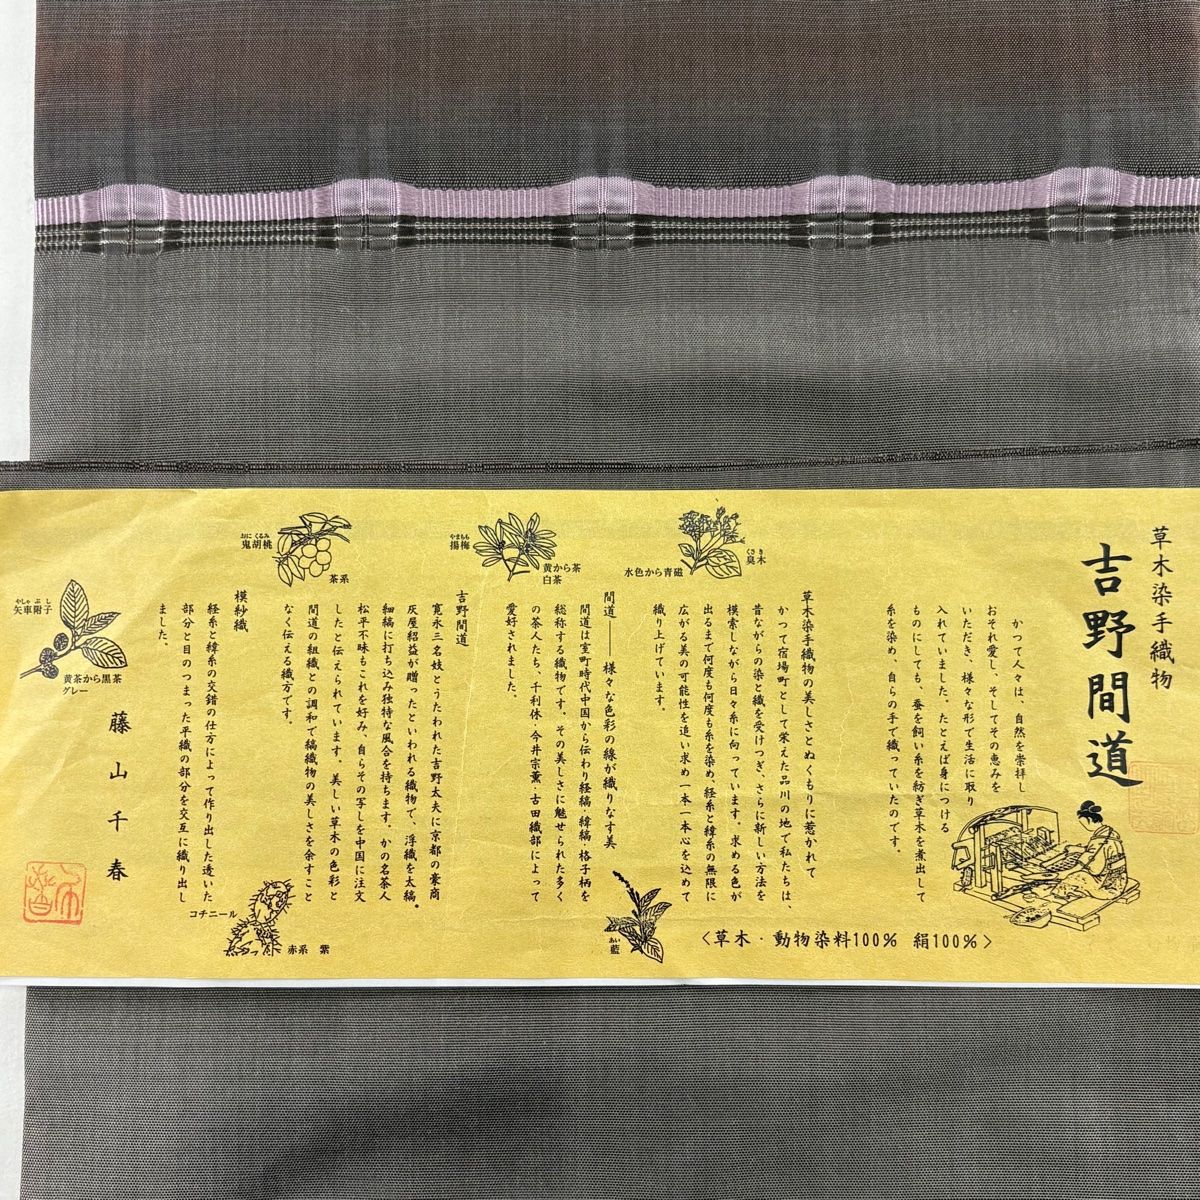 草木染手織物
吉野間道
かつて人々は、自然を崇拝し
おそれ愛し、そしてその恵みを
いただき、様々な形で生活に取り
入れていました。たとえば身につける
ものにしても、蚕を飼い糸を紡ぎ草木を煮出して
糸を染め、自らの手で織っていたのです。
〈草木・動物染料100% 絹100%〉
草木染手織物の美しさとぬくもりに惹かれて
かつて宿場町として栄えた品川の地で私たちは、
昔ながらの染と織を受けつぎ、さらに新しい方法を
模索しながら日々糸に向っています。求める色が
出るまで何度も何度も糸を染め、経糸と緯糸の無限に
広がる美の可能性を追い求め一本一本心を込めて
織り上げています。
間道——様々な色彩の線が織りなす美
間道は室町時代中国から伝わり経縞・緯縞・格子柄を
総称する織物です。その美しさに魅せられた多く
の茶人たち、千利休・今井宗薫・古田織部によって
愛好されました。
吉野間道
寛永三名妓とうたわれた吉野太夫に京都の豪商
灰屋紹益が贈ったといわれる織物で、浮織を太縞。
細縞に打ち込み独特な風合を持ちます。かの名茶人
松平不昧もこれを好み、自らその写しを中国に注文
したと伝えられています。美しい草木の色彩と
間道の組織との調和で縞織物の美しさを余すこと
なく伝える織方です。
模紗織
経糸と緯糸の交錯の仕方によって作り出した透いた
部分と目のつまった平織の部分を交互に織り出し
ました。
藤山千春
くさき
臭木
水色から青磁
やまもも
揚梅
黄から茶
白茶
おにくるみ
鬼胡桃
茶系
やしゃぶし
矢車附子
黄茶から黒茶
グレー
あい
藍
コチニール
赤系 紫